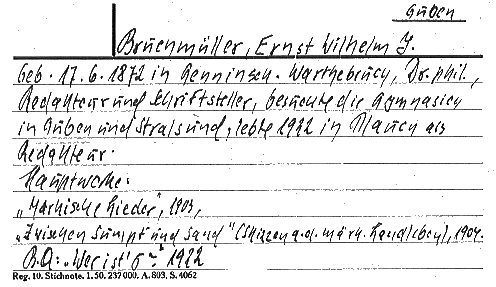 Guben
Bruenmüller, Ernst Wilhelm J.
Geb. 17.6.1872 in Renninsch-Warthebruch, Dr. phil.,
Redakteur und Schriftsteller, besuchte die Gymnasien
in Guben und Stralsund, lebte 1922 in Nauen als
Redakteur.
Hauptwerke:
„Märkische Lieder", 1903,
„Zwischen Sumpf und Sand" (Skizzen a.d. märk. Landleben), 1904.
B.A.: „Wer ist's" 1922
Reg. 10. Stichnote. 1. 50. 237000. A. 803. S. 4062